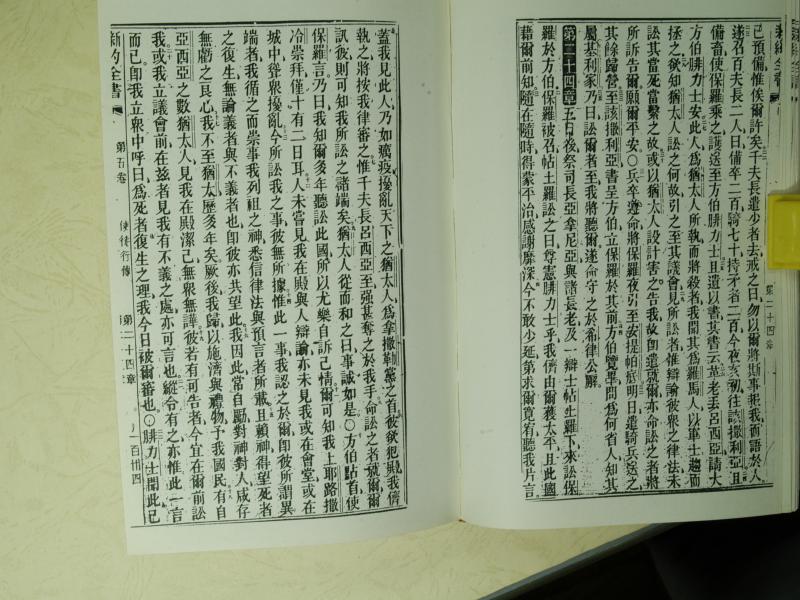 新約全書
第二十四章
已預備惟俟爾許矣千夫長遣少者去戒之曰勿以爾將斯事報我而語於人
遂召百夫長二人曰備卒二百騎七十持矛者二百今夜亥初往該撒利亞且
備畜使保羅乘之護送至方伯腓力士且遺以書其書云革老丟呂西亞請大
方伯腓力士安此人爲猶太人所執而將殺者我聞其爲羅馬人以軍士趨而
拯之欲知猶太人訟之何故引之至其議會見所訟者惟辯論彼衆之律法未
訟其當死當繫之故或以猶太人設計害之告我故卽遣就爾亦命訟之者將
所訴告爾願爾平安〇兵卒遵命將保羅夜引至安提帕底明日遣騎兵送之
其餘歸營至該撒利亞書呈方伯立保羅於其前方伯覽畢問爲何省人知其
屬基利家乃曰訟爾者至我將聽爾遂命守之於希律公廨
第二十四章五日後祭司長亞拿尼亞與諸長老及一辯士帖土羅下來訟保
羅於方伯保羅被召帖土羅訟之曰尊憲腓力士乎我儕由爾獲太平且此國
藉爾前知隨在隨時得蒙平治感謝靡深今不敢少延第求爾寬宥聽我片言
蓋我見此人乃如癘疫擾亂天下之猶太人爲拿撒勒黨之首彼欲犯殿我儕
執之將按我律審之惟千夫長呂西亞至强甚奪之於我手命訟之者就爾爾
訊彼則可知我所訟之諸端矣猶太人從而和之曰事誠如是〇方伯點首使
保羅言乃曰我知爾多年聽訟此國所以尤樂自訴己情爾可知我上耶路撒
冷崇拜僅十有二日耳人未嘗見我在殿與人辯論亦未見我或在會堂或在
城中聳衆擾亂今所訟我之事彼無所據惟此一事我認之於爾卽彼所謂異
端者我循之而崇事我列祖之神悉信律法與預言者所載且賴神得望死者
之復生無論義者與不義者也卽彼亦共望此我因此當自勵對神對人咸存
無虧之良心我不至猶太歷多年矣厥後我歸以施濟與禮物予我國民有自
亞西亞之數猶太人見我在殿潔己無衆無譁彼若有可告者今宜在爾前訟
我或我立議會前在兹者見我有不義之處亦可言也縱令有之亦惟此一言
而已卽我立衆中呼曰爲死者復生之理我今日被爾審也〇腓力士聞此已
新約全書 第五卷 使徒行傳 第二十四章 一百卅四